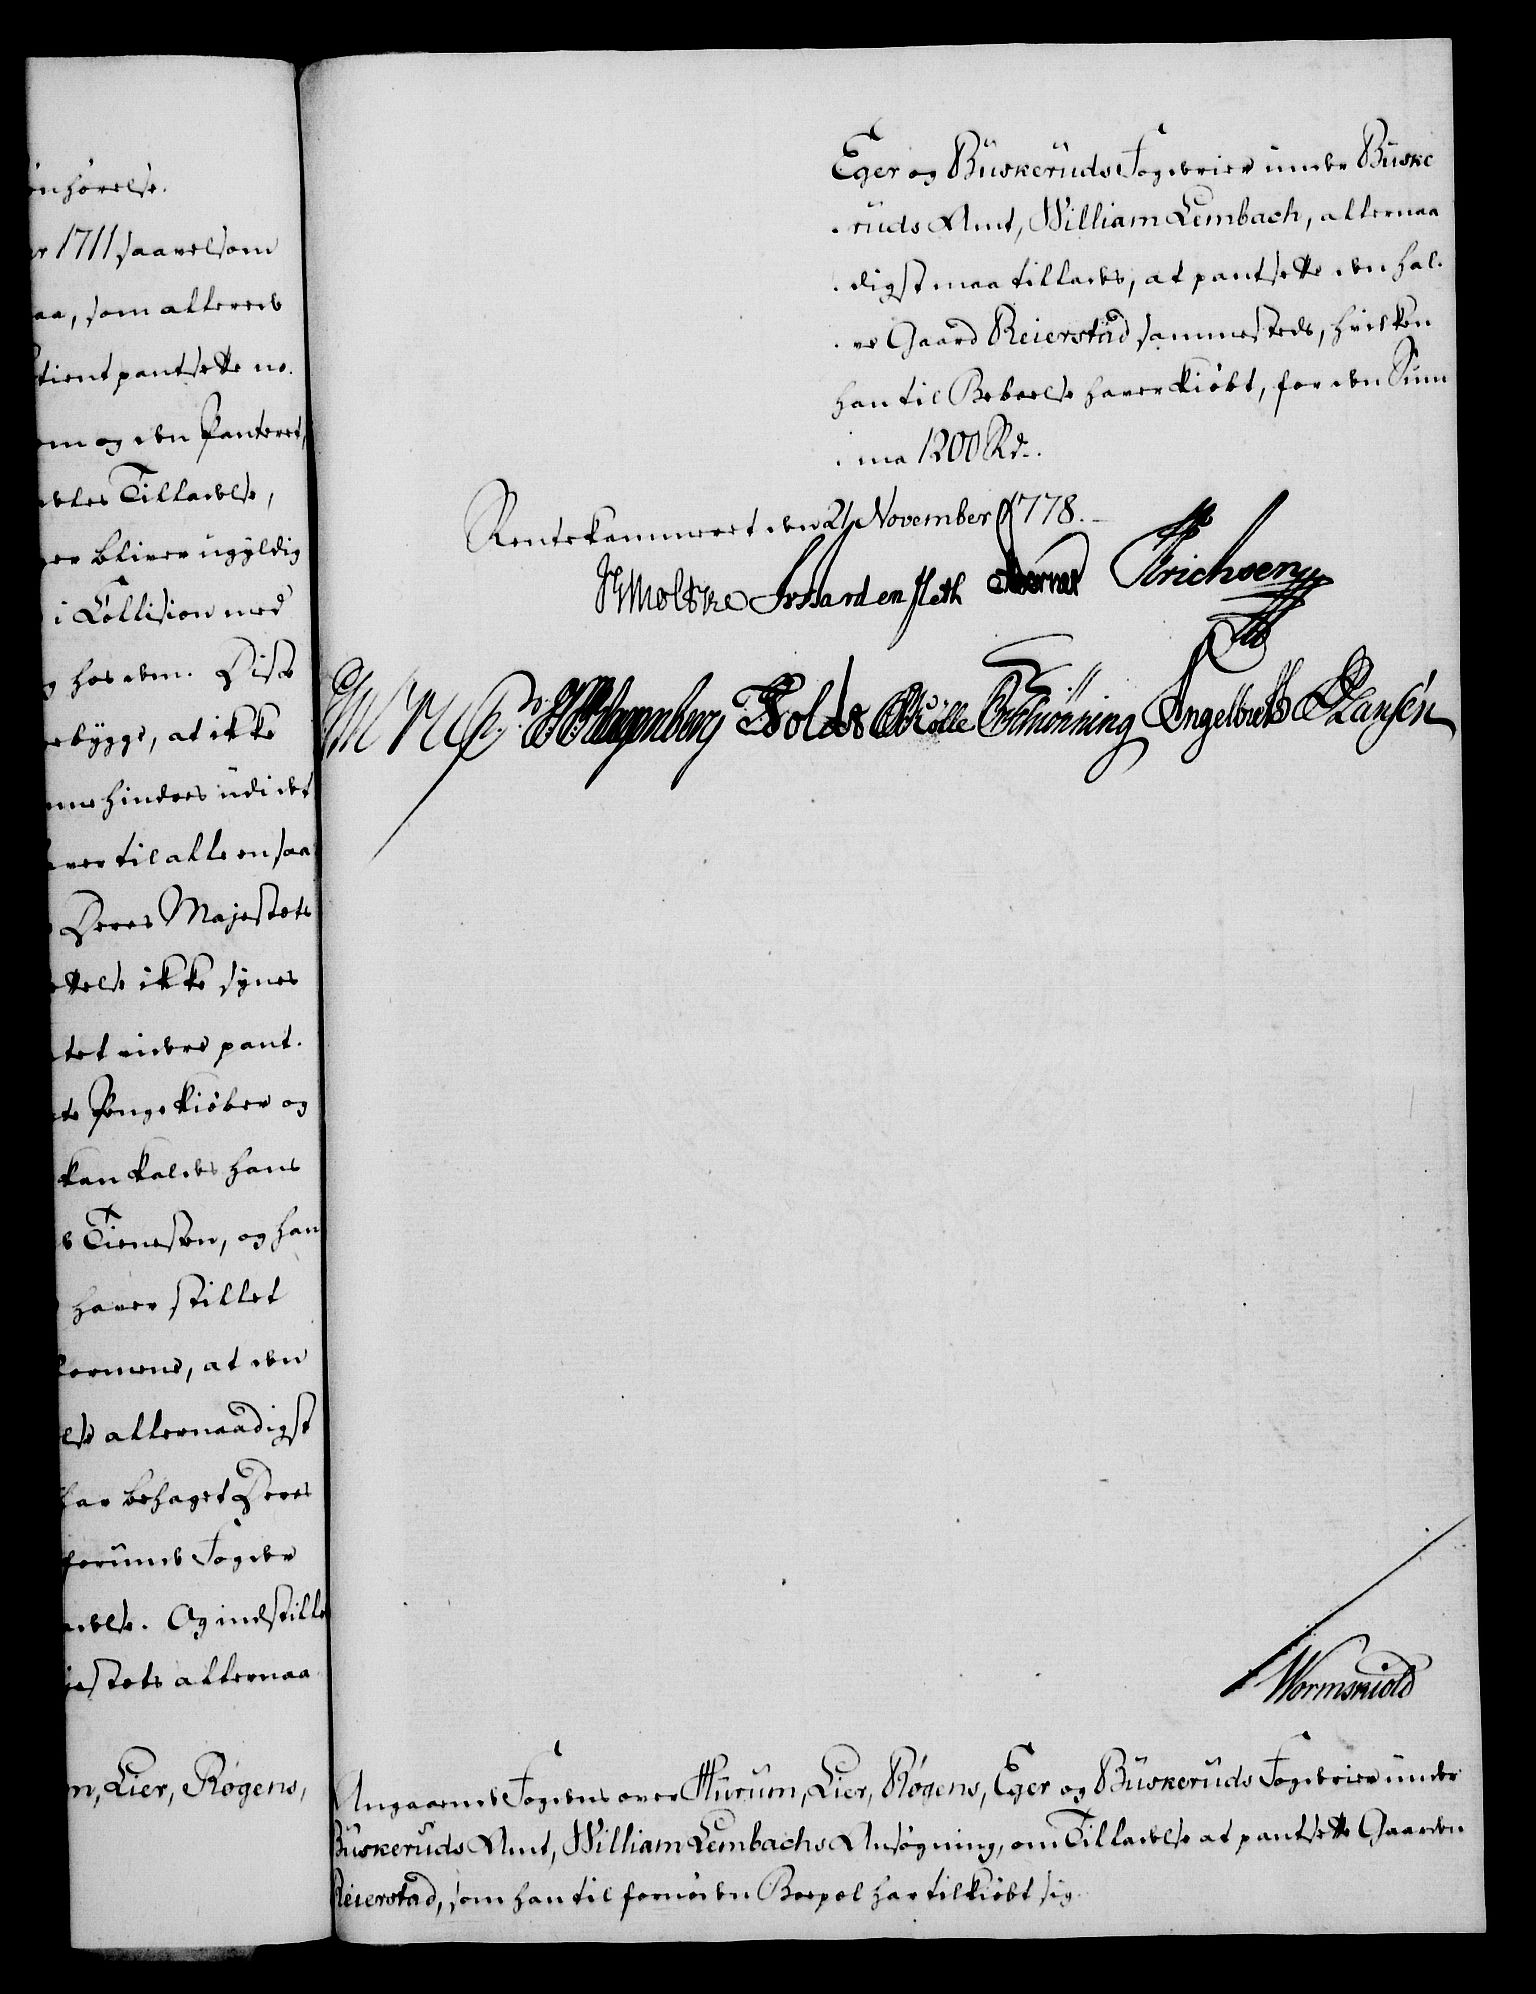 ønhørelse.
er 1711 saavelsom
aa, som allerede
tient pantsette ne.
om og den Panteret,
deles Tilladelse,
er bliver ugyldig
i Collision med
g hos dem. Disse
ebygge, at ikke
me hindres udi det
ver til alle en saa
Deres Majestets
ttelse ikke synes
tet videre pant.
te Penge kiøber og
kan kaldes hans
Tienesten, og han
haver stillet
formene, at den
else allernaadigst
har behaget Deres
forrunde Fogder
adelse. Og indstille
jestets allernaa
m, Lier, Røgens,
Eger og Buskeruds Fogderier under Buske
ruds Amt, William Lembach, allernaa
digst maa tillades, at pantsette den hal-
ve Gaard Reierstad sammesteds, hvilken
han til Beboelse haver kiøbt, for den Sum
ma 1200 Rd.
Rentekammeret den 21 November 1778.
HMoltke Frisardenfleth Erichsen
Holdt Müller Schiønning Engelbreth Hansen
Wormskiold
Angaaende Fogdens over Hurum, Lier, Røgens, Eger og Buskeruds Fogderier under
Buskeruds Amt, William Lembachs Ansøgning, om Tilladelse at pantsette Gaarden
Reierstad, som han til fornøden Boepæl har tilkiøbt sig.